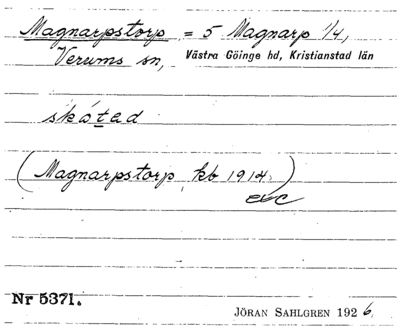 Magnarpstorp = 5 Magnarp 1/4,
Verums sn, Västra Göinge hd, Kristianstad län
skóted
(Magnarpstorp kb 1914.)
Nr 5371.
JÖRAN SAHLGREN 1926.